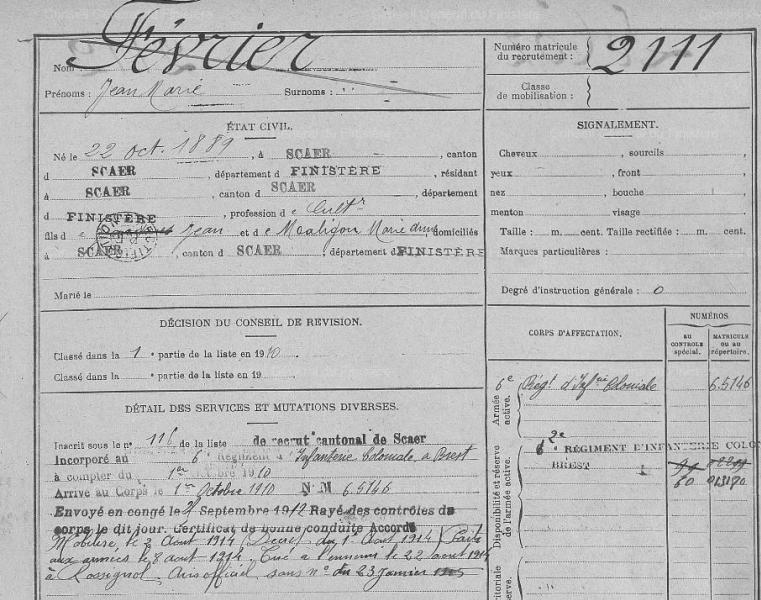 Nom : Février
Prénoms : Jean Marie Surnoms :
Numéro matricule du recrutement : 2111
Classe de mobilisation :
ÉTAT CIVIL.
Né le 22 oct. 1889, à SCAER, canton
d SCAER, département d FINISTÈRE, résidant
à SCAER, canton d SCAER, département
d FINISTÈRE, profession de Cultr
fils de Jean et de Maligon Marie Anne domiciliés
à SCAER, canton d SCAER, département d FINISTÈRE
Marié le
SIGNALEMENT.
Cheveux , sourcils
yeux , front
nez , bouche
menton , visage
Taille : m. cent. Taille rectifiée : m. cent.
Marques particulières :
Degré d'instruction générale : 0
DÉCISION DU CONSEIL DE REVISION.
Classé dans la 1e partie de la liste en 1910
Classé dans la e partie de la liste en 19
DÉTAIL DES SERVICES ET MUTATIONS DIVERSES.
Inscrit sous le no 116 de la liste de recrut cantonal de Scaer
Incorporé au 6e Régiment d'Infanterie Coloniale, à Brest
à compter du 1er octobre 1910
Arrivé au Corps le 1er Octobre 1910 NM 6.5146
Envoyé en congé le Septembre 1912 Rayé des contrôles du
corps le dit jour. Certificat de bonne conduite Accordé
Mobilisé le 3 Août 1914 (Décret du 1er Août 1914) Parti
aux armées le 8 août 1914. Tué à l'ennemi le 22 août 1914
à Rossignol. Avis officiel sans no du 23 janvier 1915
CORPS D'AFFECTATION.
NUMÉROS
AU CONTROLE spécial.
MATRICULE OU AU répertoire.
Armée active.
6e Régt d'Infrie Coloniale 6.5146
Disponibilité et réserve de l'armée active.
2e
6e RÉGIMENT D'INFANTERIE COLO
BREST
60 013170